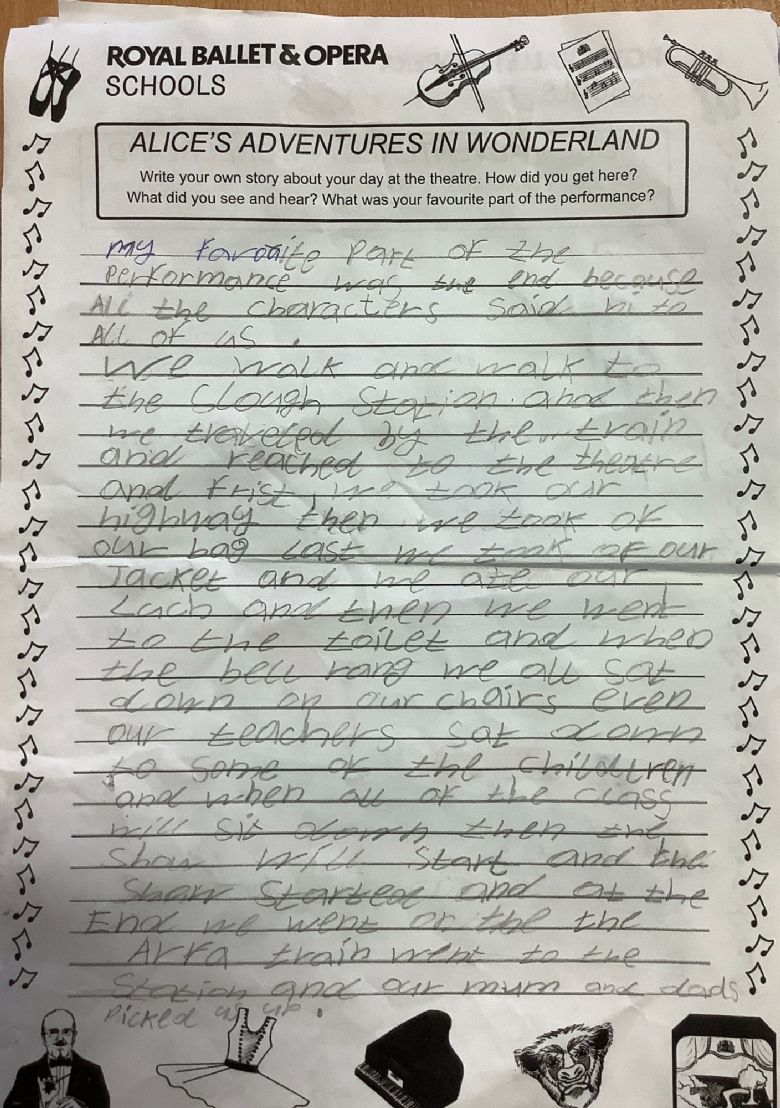 ROYAL BALLET & OPERA
SCHOOLS
ALICE'S ADVENTURES IN WONDERLAND
Write your own story about your day at the theatre. How did you get here?
What did you see and hear? What was your favourite part of the performance?
my favoaite part of the
performance was the end because
All the characters said hi to
All of us .
we walk and walk to
the Slough Station and then
we traveled by the train
and reached to the theatre
and frist, we took our
highway then we took of
our bag last we took of our
Jacket and we ate our
Luch and then we went
to the toilet and when
the bell rang we all sat
down on our chairs even
our teachers sat down
to some of the childdren
and when all of the class
will sit down then the
show will start and the
show started and at the
End we went or the the
Arra train went to the
Station and our mum and dads
picked us up .